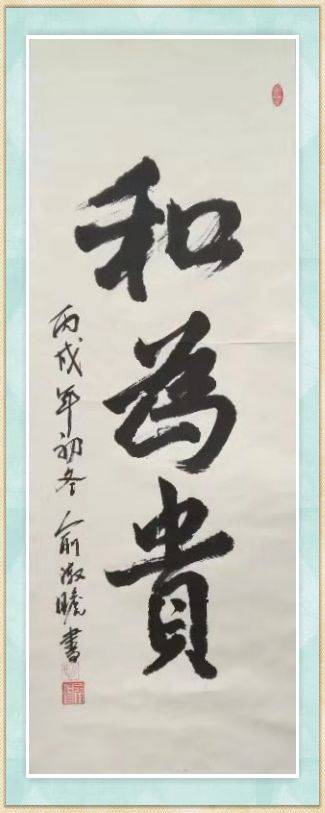 和為貴
丙戌年初冬 俞淑瞻書